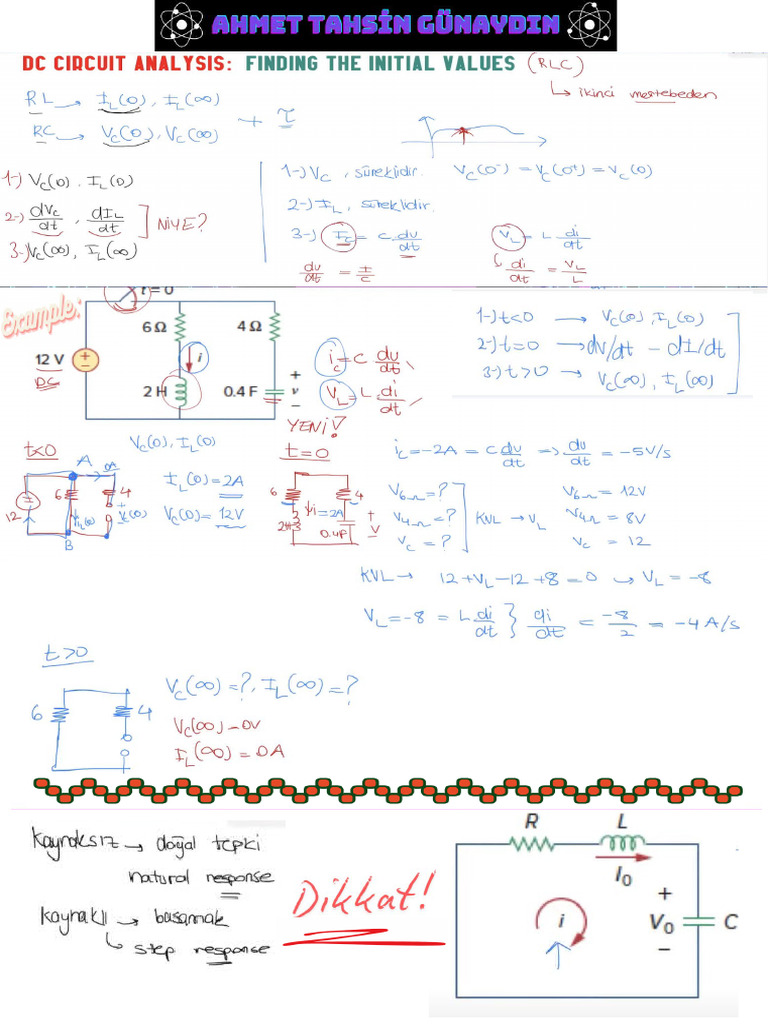 AHMET TAHSİN GÜNAYDIN
DC CIRCUIT ANALYSIS: FINDING THE INITIAL VALUES (RLC)
↳ ikinci mertebeden
RL → I_L(0), I_L(∞)
RC → V_C(0), V_C(∞)
+ τ
1-) V_C(0), I_L(0)
2-) dV_C/dt, dI_L/dt ] NİYE?
3-) V_C(∞), I_L(∞)
1-) V_C, süreklidir. V_C(0⁻) = V_C(0⁺) = V_C(0)
2-) I_L, süreklidir.
3-) I_C = C.du/dt V_L = L di/dt
du/dt = I/C di/dt = V_L/L
Example:
t = 0
6 Ω
4 Ω
12 V
DC
i
2 H
0.4 F
+
v
−
i_C = C du/dt
V_L = L.di/dt
YENİ!
1-) t<0 → V_C(0), I_L(0)
2-) t=0 → dV/dt − dI/dt
3-) t>0 → V_C(∞), I_L(∞)
t<0
V_C(0), I_L(0)
A
0A
12
6
4
I_L(0)
+
V_C(0)
−
B
I_L(0) = 2A
V_C(0) = 12V
t=0
6
4
i=2A
2H
0.4F
+
V
−
i_C = −2A = C du/dt ⇒ du/dt = −5V/s
V_6Ω = ? V_6Ω = 12V
V_4Ω = ? KVL → V_L V_4Ω = 8V
V_C = ? V_C = 12
KVL → 12 + V_L − 12 + 8 = 0 → V_L = −8
V_L = −8 = L di/dt } di/dt = −8/2 = −4 A/s
t>0
6
4
V_C(∞) = ?, I_L(∞) = ?
V_C(∞) − 0V
I_L(∞) = 0A
Kaynaksız → doğal tepki
natural response
Kaynaklı → basamak
↳ step response
Dikkat!
R
L
I₀
i
+
V₀
−
C